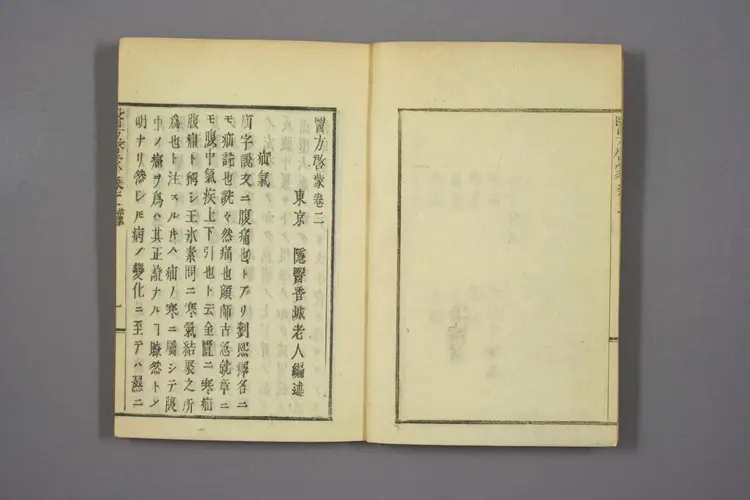 醫方啓蒙卷二
東京 隱醫香城老人編述
疝氣
疝字說文ニ腹痛也トアリ劉熙釋名ニ
モ疝詵也詵々然痛也顏師古急就章ニ
モ腹中氣疾上下引也ト云金匱ニ寒疝
腹痛ト稱シ王氷素問ニ寒氣結聚之所
爲也ト注スル片ハ疝ノ寒ニ屬シテ腹
中ノ痛ヲ爲ハ其正證ナルヿ瞭然トメ
明ナリ然レ𪜈病ノ變化ニ至テハ濕ニ